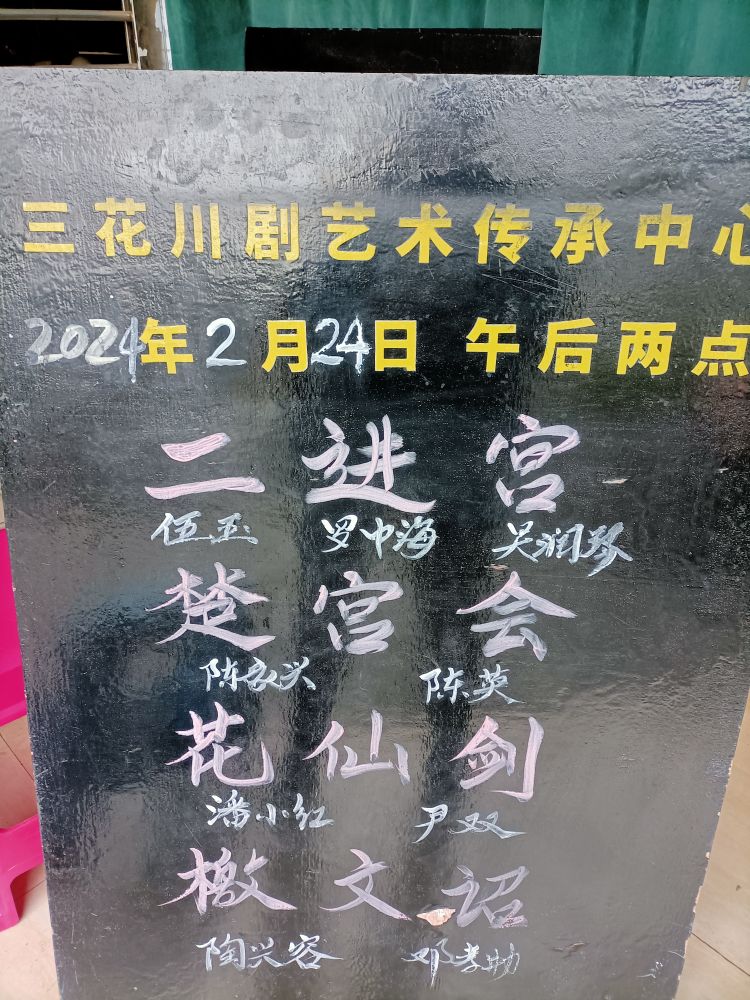 三花川剧艺术传承中心
2024年2月24日 午后两点
二进宫
伍玉 罗中海 吴润琴
楚宫会
陈家兴 陈英
花仙剑
潘小红 尹双
檄文诏
陶兴容 邓孝勋